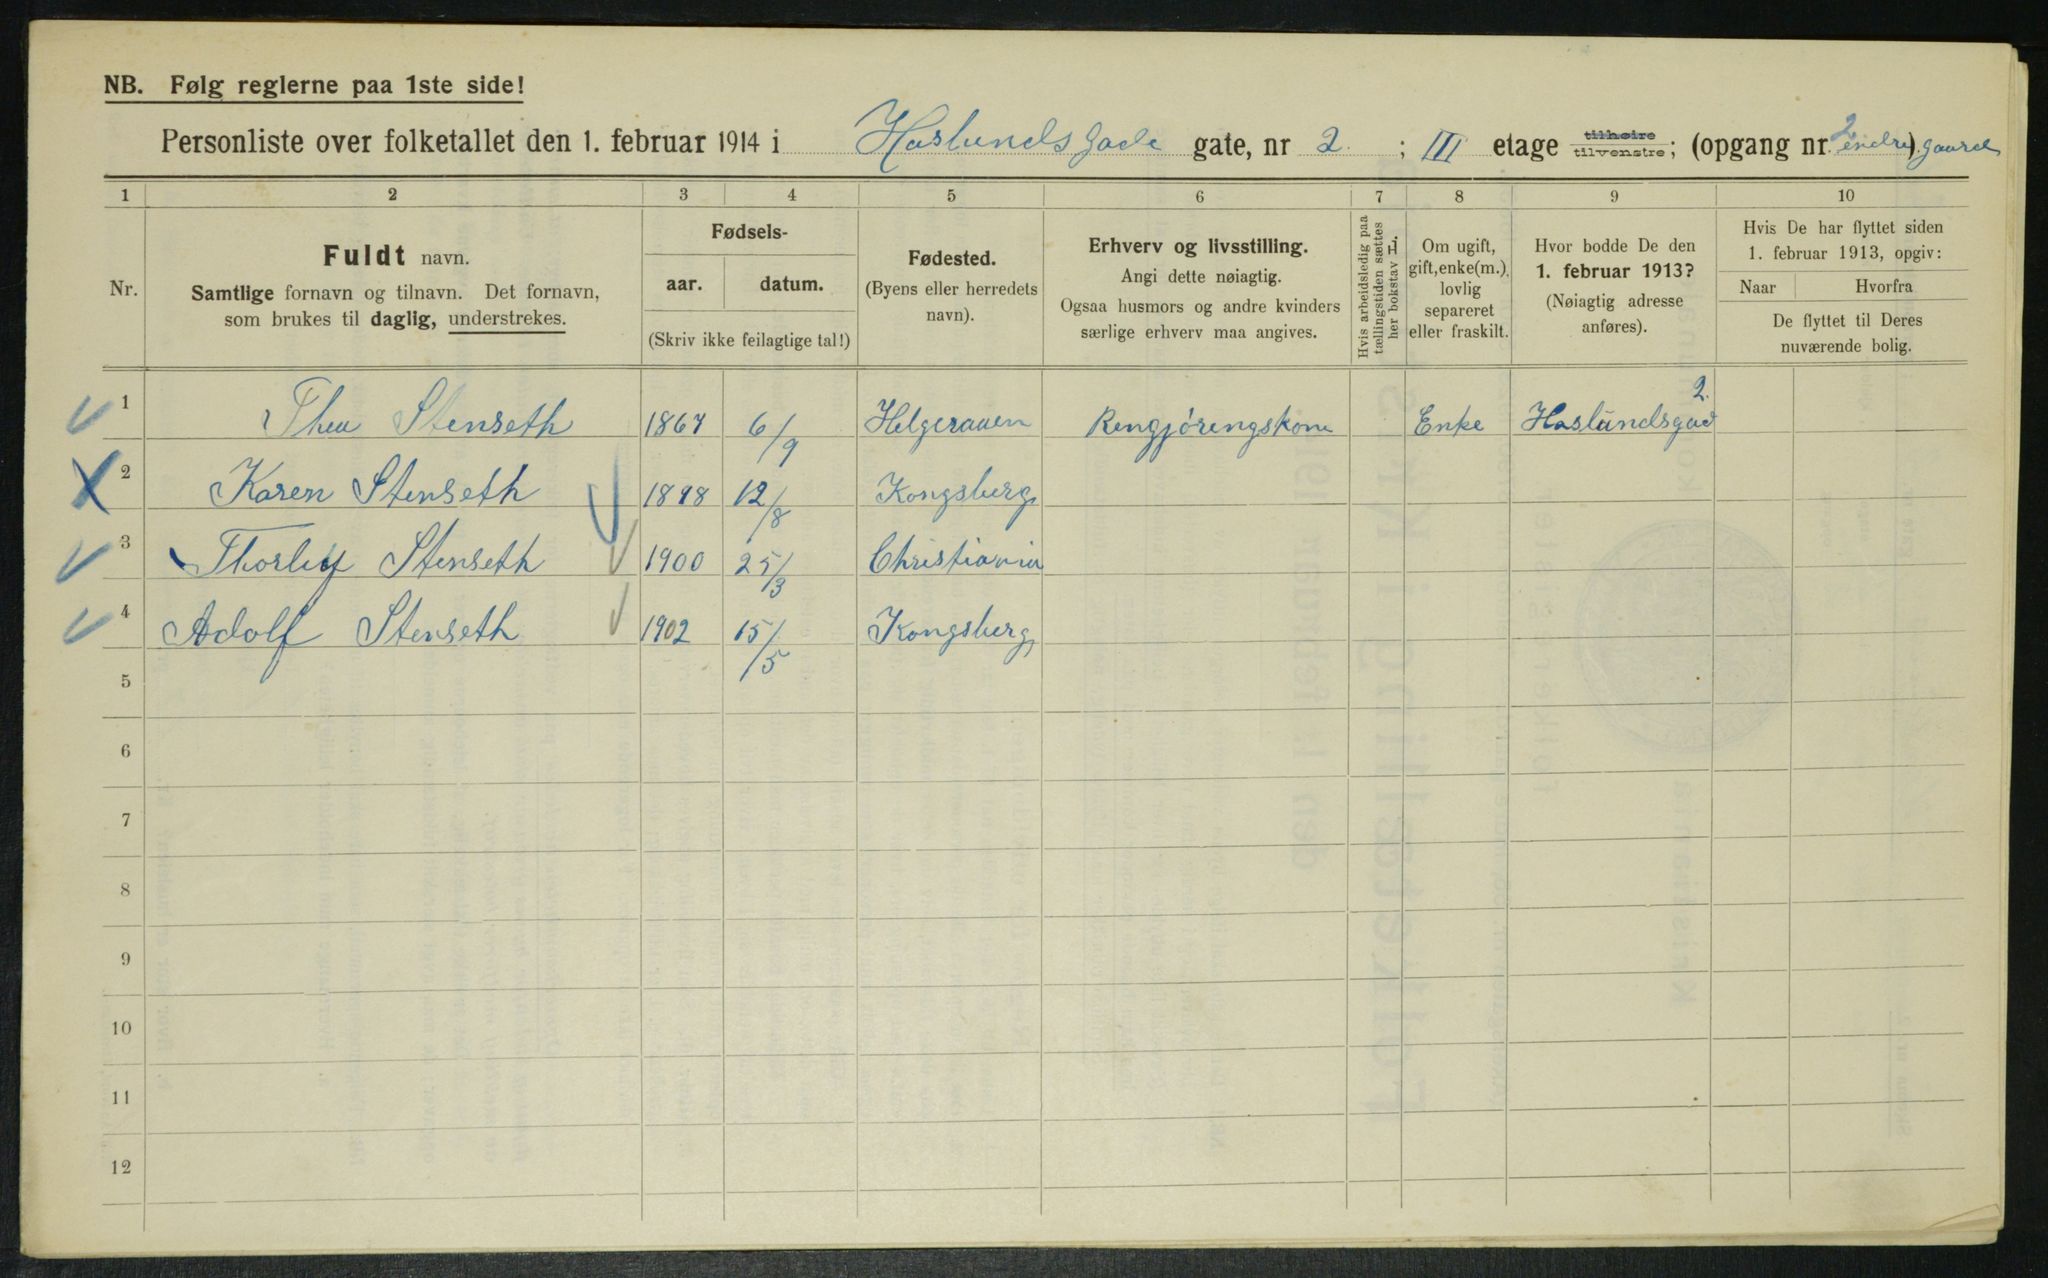 NB. Følg reglerne paa 1ste side!
Personliste over folketallet den 1. februar 1914 i Haslunds gade gate, nr 2 ; III etage tilhøire tilvenstre; (opgang nr. 2 indre) gaard
1 2 3 4 5 6 7 8 9 10
Nr.
Fuldt navn.
Samtlige fornavn og tilnavn. Det fornavn,
som brukes til daglig, understrekes.
Fødsels-
aar. datum.
(Skriv ikke feilagtige tal!)
Fødested.
(Byens eller herredets
navn).
Erhverv og livsstilling.
Angi dette nøiagtig.
Ogsaa husmors og andre kvinders
særlige erhverv maa angives.
Hvis arbeidsledig paa
tællingstiden sættes
her bokstav L.
Om ugift,
gift, enke(m.),
lovlig
separeret
eller fraskilt.
Hvor bodde De den
1. februar 1913?
(Nøiagtig adresse
anføres).
Hvis De har flyttet siden
1. februar 1913, opgiv:
Naar Hvorfra
De flyttet til Deres
nuværende bolig.
1 Thea Stenseth 1867 6/9 Helgeraaen Rengjøringskone Enke Haslundsgad 2.
2 Karen Stenseth 1898 12/8 Kongsberg
3 Thorleif Stenseth 1900 25/3 Christiania
4 Adolf Stenseth 1902 15/5 Kongsberg
5
6
7
8
9
10
11
12